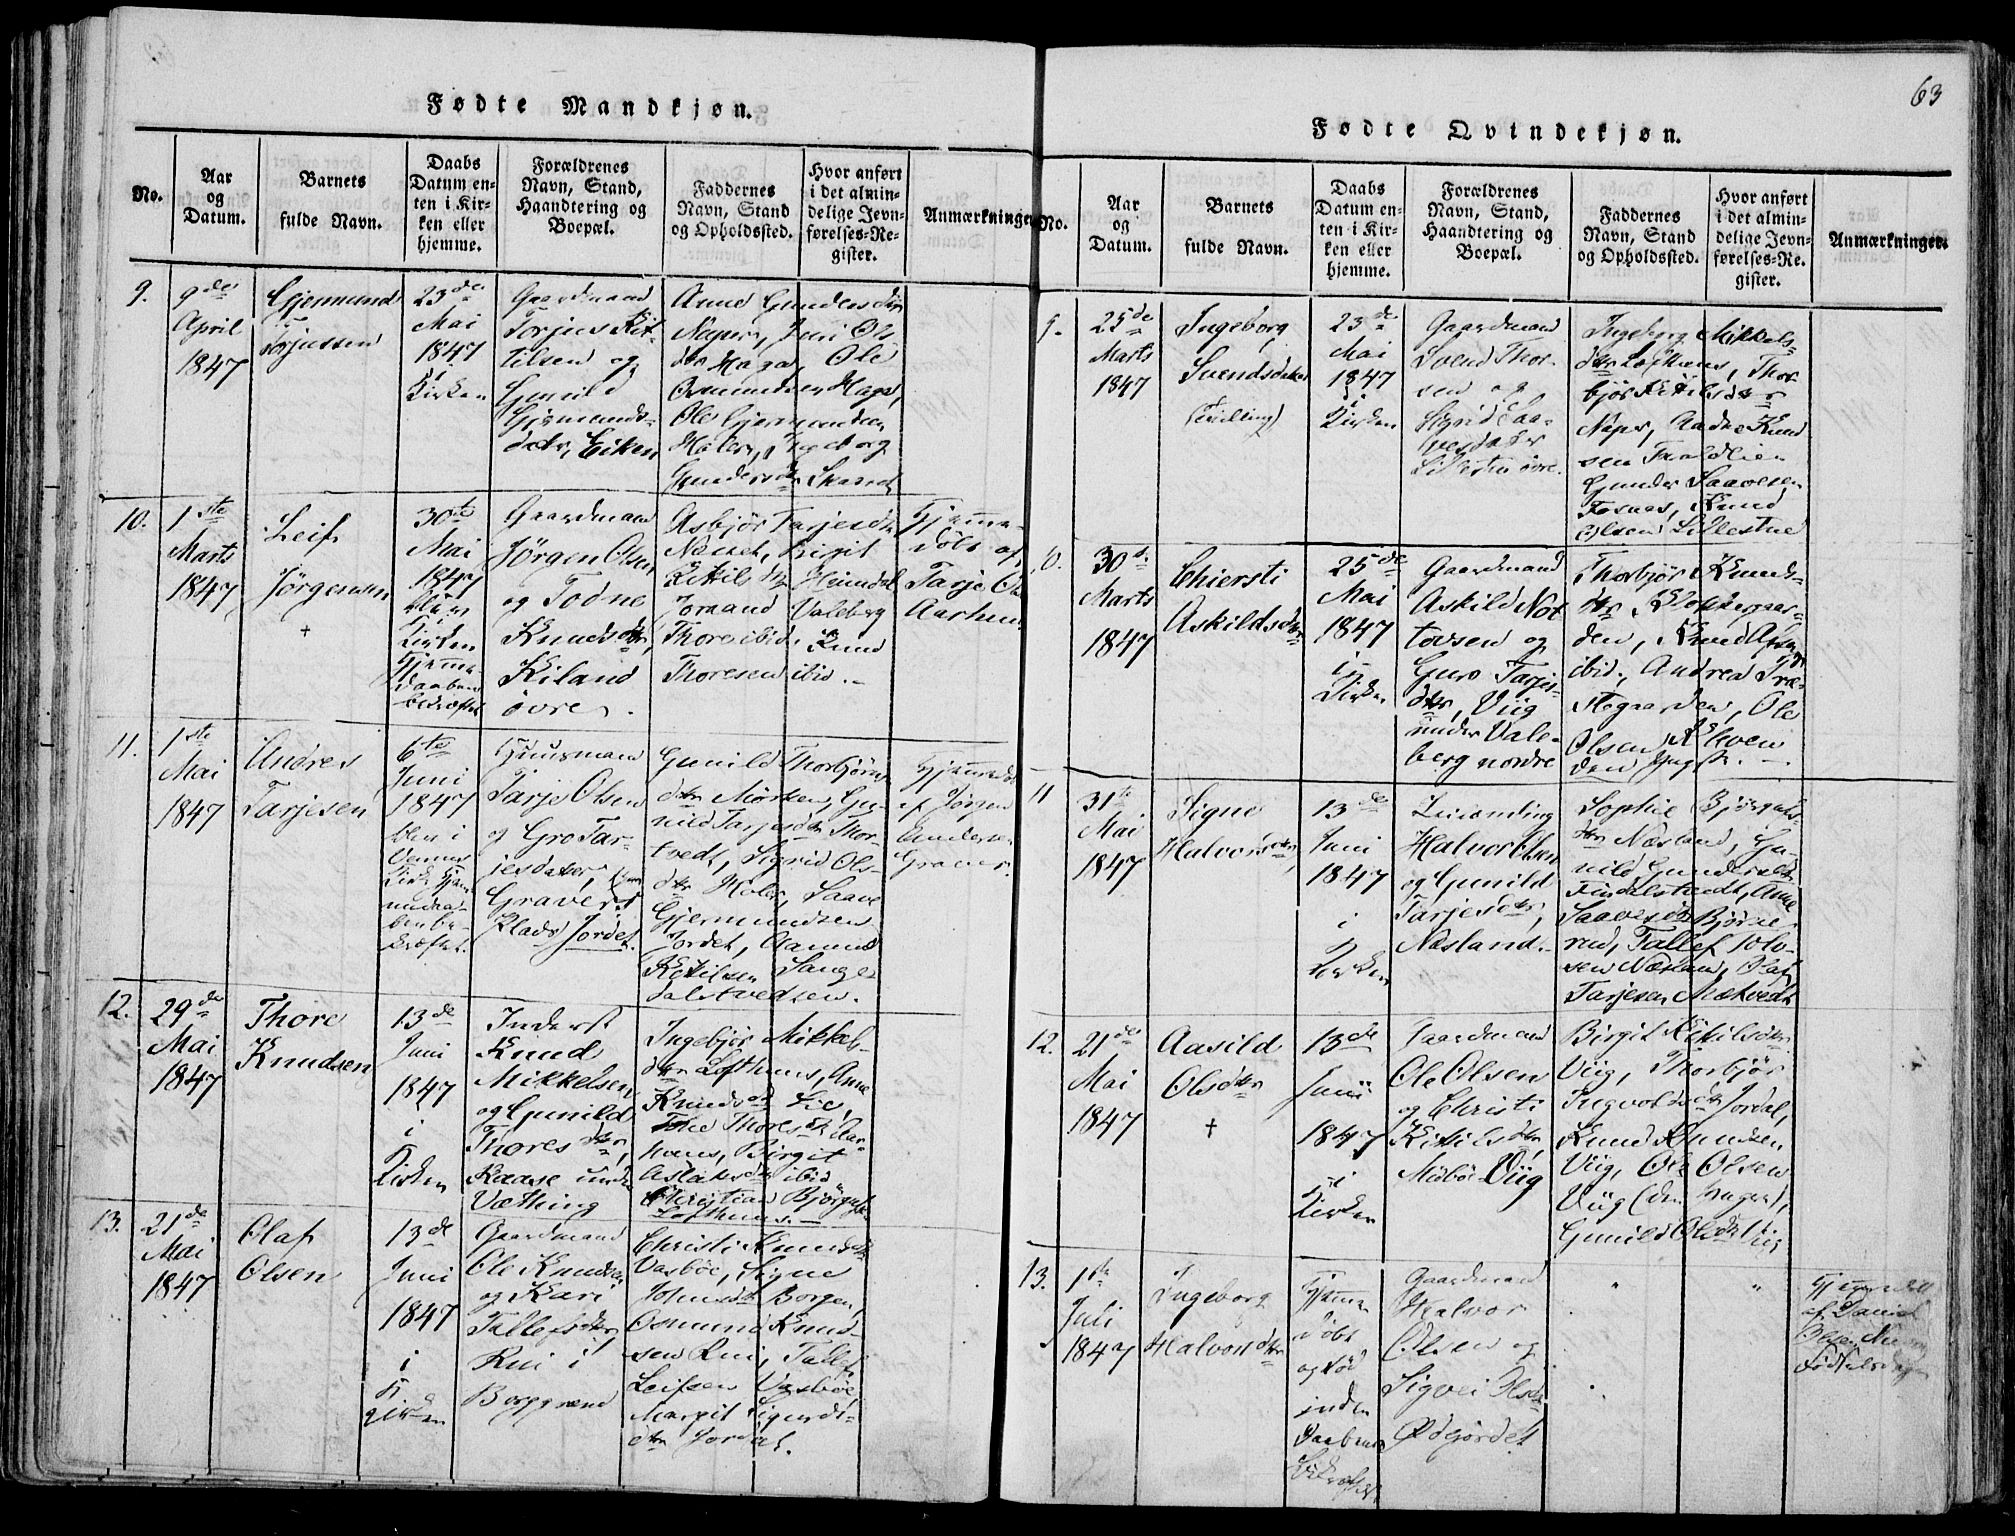 63
Fødte Mandkjøn.
No.
Aar
og
Datum.
Barnets
fulde Navn.
Daabs
Datum en-
ten i Kir-
ken eller
hjemme.
Forældrenes
Navn, Stand,
Haandtering og
Boepæl.
Faddernes
Navn, Stand
og Opholdssted.
Hvor anført
i det almin-
delige Jevn-
førelses-Re-
gister.
Anmærkninger
9.
9de
April
1847
Gjermund
Torjussen
23de
Mai
1847
i
Kirken
Gaardmand
Torjus Kit-
tilsen og
Gunild
Gjermunds-
datr, Eiken
Anne Gundersdtr
Naper, Juri Ols
dtr Haga, Ole
Osmundsen Haga,
Ole Gjermundsen
Holen, Ingeborg
Gundersdtr
10.
1ste
Marts
1847
Leif
Jørgensen
+
30te
Mai
1847
blev i
Kirken
Hjemme-
daaben
bekræftet
Gaardmand
Jørgen Olsen
og Todne
Knudsdtr,
Kiland
øvre.
Asbjør Tarjesdtr
Næset, Birgit
Ketilsdtr
Joraand Valeberg
Thore ibid. Knud
Thoresen ibid.-
Hjemme-
døbt af
Tarje Ols
Aarhus
11.
1ste
Mai
1847
Andres
Tarjesen
6te
Juni
1847
blev i
Kirke Hjem
medaa-
ben be-
kræftet.
Huusmand
Tarje Olsen
og Gro Tar-
jesdater,
Graver
Plads Jordet
Gunild Thorbjørns
dtr Mørken, Gu-
nild Tarjesdtr Thor-
tvedt, Sigrid Ols-
dtr Holen, Saave
Gjermundsen
Jordet, Aanund
Ketilsen Lange-
Hjemmedøbt
af Jørgen
Andersen
Graver
12.
29de
Mai
1847
Thore
Knudsen
13de
Juni
1847
i
Kirken
Inderst
Knud
Mikkelsen
og Gunild
Thoresdtr,
Kaase under
Væthing
Ingebjør Mikkels-
dtr Lofthuus, Anne
Knudsdtr Lie,
Thoresdtr Aar-
huus, Birgit
Aslaksdtr ibid
Christian Bjørguls.
Lofthuus.-
13.
21de
Mai
1847
Olaf
Olsen
13de
Juni
1847
i
Kirken
Gaardmand
Ole Knudsen
og Kari
Tallefsdtr
Rui i
Borggrend
Christi Knudsdtr
Vasbøe, Signe
Johnsdtr Borgen,
Osmund Knud-
sen Rui, Tallef
Leifsen Vasbøe
Margit Sigurds-
dtr Jordal.
Fødte Qvindekjøn.
No.
Aar
og
Datum.
Barnets
fulde Navn.
Daabs
Datum en-
ten i Kir-
ken eller
hjemme.
Forældrenes
Navn, Stand,
Haandtering og
Boepæl.
Faddernes
Navn, Stand
og Opholdssted.
Hvor anført
i det almin-
delige Jevn-
førelses-Re-
gister.
Anmærkninger.
9.
25de
Marts
1847
Ingeborg
Svendsdater
(Tvilling)
23de
Mai
1847
i
Kirken
Gaardmand
Svend Thor-
sen og
Sigrid Saa-
vesdater
Lillestue øvre.
Ingeborg Mikkels-
dtr Lofthuus, Thor-
bjør Ketilsdtr
Naper, Aadne Knud
sen Traldlien
Gunder Saavesen
Fosnæs, Knud
Olsen Lillestue
10.
30te
Marts
1847
Chiersti
Askildsdtr
25de
Mai
1847
i
Kirken
Gaardmand
Askild Not
tovsen og
Guro Tarjes-
dtr, Viig
under Vale-
berg nordre
Thorbjør Knuds-
dtr Kloppergaar-
den, Knud
ibid., Andrea Præ-
stegaarden, Ole
Olsen Kleven
den yngste.-
11
31te
Mai
1847
Signe
Halvorsdtr,
13de
Juni
1847
i
Kirken
Leilending
Halvor Olsen
og Gunild
Tarjesdtr,
Næsland.-
Sophie Bjørguls-
dtr Næsland, Gu-
nild Gundersdtr
Findelstvedt, Anne
Saavesdtr Bjørne-
rud, Tallef Tolv-
sen Næsland, Olaf
Tarjesen Mækvedt
12.
21de
Mai
1847
Aasild
Olsdtr
+
13de
Juni
1847
i
Kirken
Gaardmand
Ole Olsen
og Christi
Kittilsdtr,
Midbøe Viig
Birgit Kittilsdtr
Viig, Thorbjør
Ingvoldsdtr Jordal,
Knud Knudsen
Viig, Ole Olsen
Viig (den yngre),
Gunild Olsdtr Viig
13.
1ste
Juli
1847
Ingeborg
Halvorsdtr
Hjemme
døbt
og død
inden
Daabens
Bekræftelse
Gaardmand
Halvor
Olsen og
Sigvei Olsdtr
Ødegjordet
"
"
Hjemmedøbt
af Daniel
Olsen
Fødselsdagen